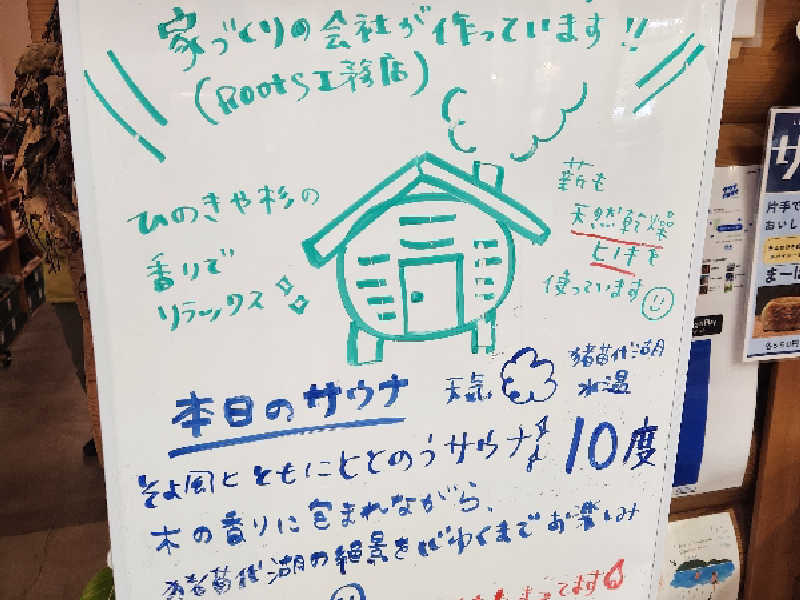 家づくりの会社が作っています!!
(Roots工務店)
ひのきや杉の
香りで
リラックス
薪も
天然乾燥
ヒノキを
使っています
本日のサウナ
天気
猪苗代湖
水温
10度
そよ風とともにととのうサウナ
木の香りに包まれながら、
猪苗代湖の絶景を心ゆくまでお楽しみ
ってます
サ
片手で
おいし
まーは